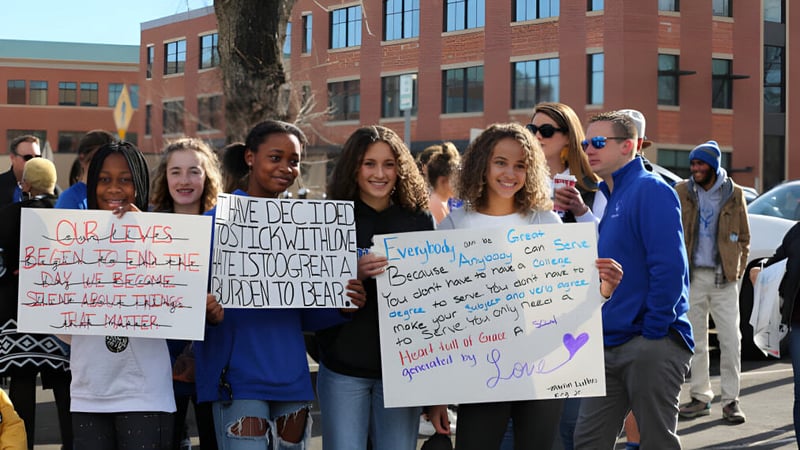 OUR LIVES
BEGIN TO END THE
DAY WE BECOME
SILENT ABOUT THINGS
THAT MATTER
I HAVE DECIDED
TO STICK WITH LOVE
HATE IS TOO GREAT A
BURDEN TO BEAR
Everybody can be Great
Because Anybody can Serve
You don't have to have a college
degree to serve You don't have to
make your subject and verb agree
to serve You only need a
Heart full of Grace A soul
generated by Love
-Martin Luther
King Jr